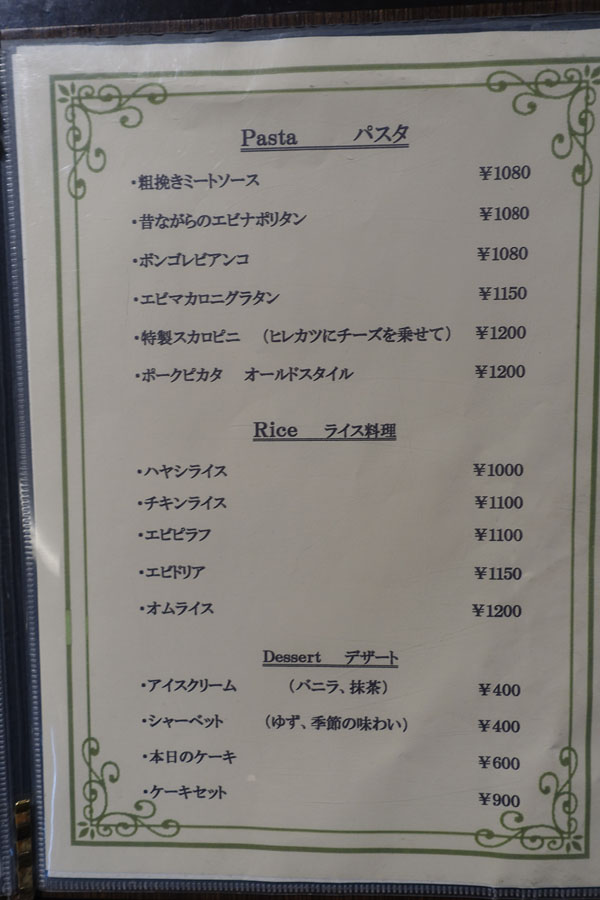 Pasta パスタ
・粗挽きミートソース ¥1080
・昔ながらのエビナポリタン ¥1080
・ボンゴレビアンコ ¥1080
・エビマカロニグラタン ¥1150
・特製スカロピニ （ヒレカツにチーズを乗せて） ¥1200
・ポークピカタ オールドスタイル ¥1200
Rice ライス料理
・ハヤシライス ¥1000
・チキンライス ¥1100
・エビピラフ ¥1100
・エビドリア ¥1150
・オムライス ¥1200
Dessert デザート
・アイスクリーム （バニラ、抹茶） ¥400
・シャーベット （ゆず、季節の味わい） ¥400
・本日のケーキ ¥600
・ケーキセット ¥900